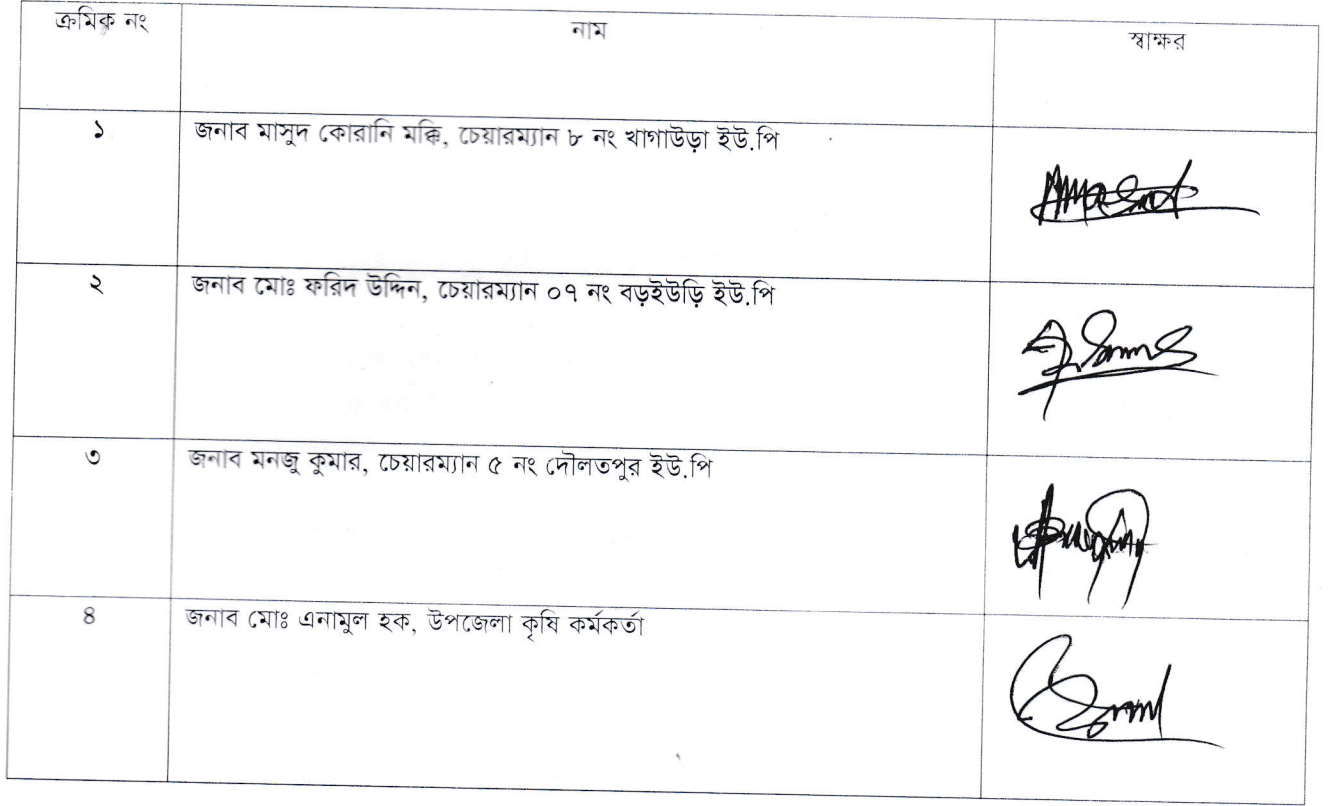 ক্রমিক নং নাম স্বাক্ষর
১ জনাব মাসুদ কোরানি মক্কি, চেয়ারম্যান ৮ নং খাগাউড়া ইউ.পি
২ জনাব মোঃ ফরিদ উদ্দিন, চেয়ারম্যান ০৭ নং বড়ইউড়ি ইউ.পি
৩ জনাব মনজু কুমার, চেয়ারম্যান ৫ নং দৌলতপুর ইউ.পি
৪ জনাব মোঃ এনামুল হক, উপজেলা কৃষি কর্মকর্তা